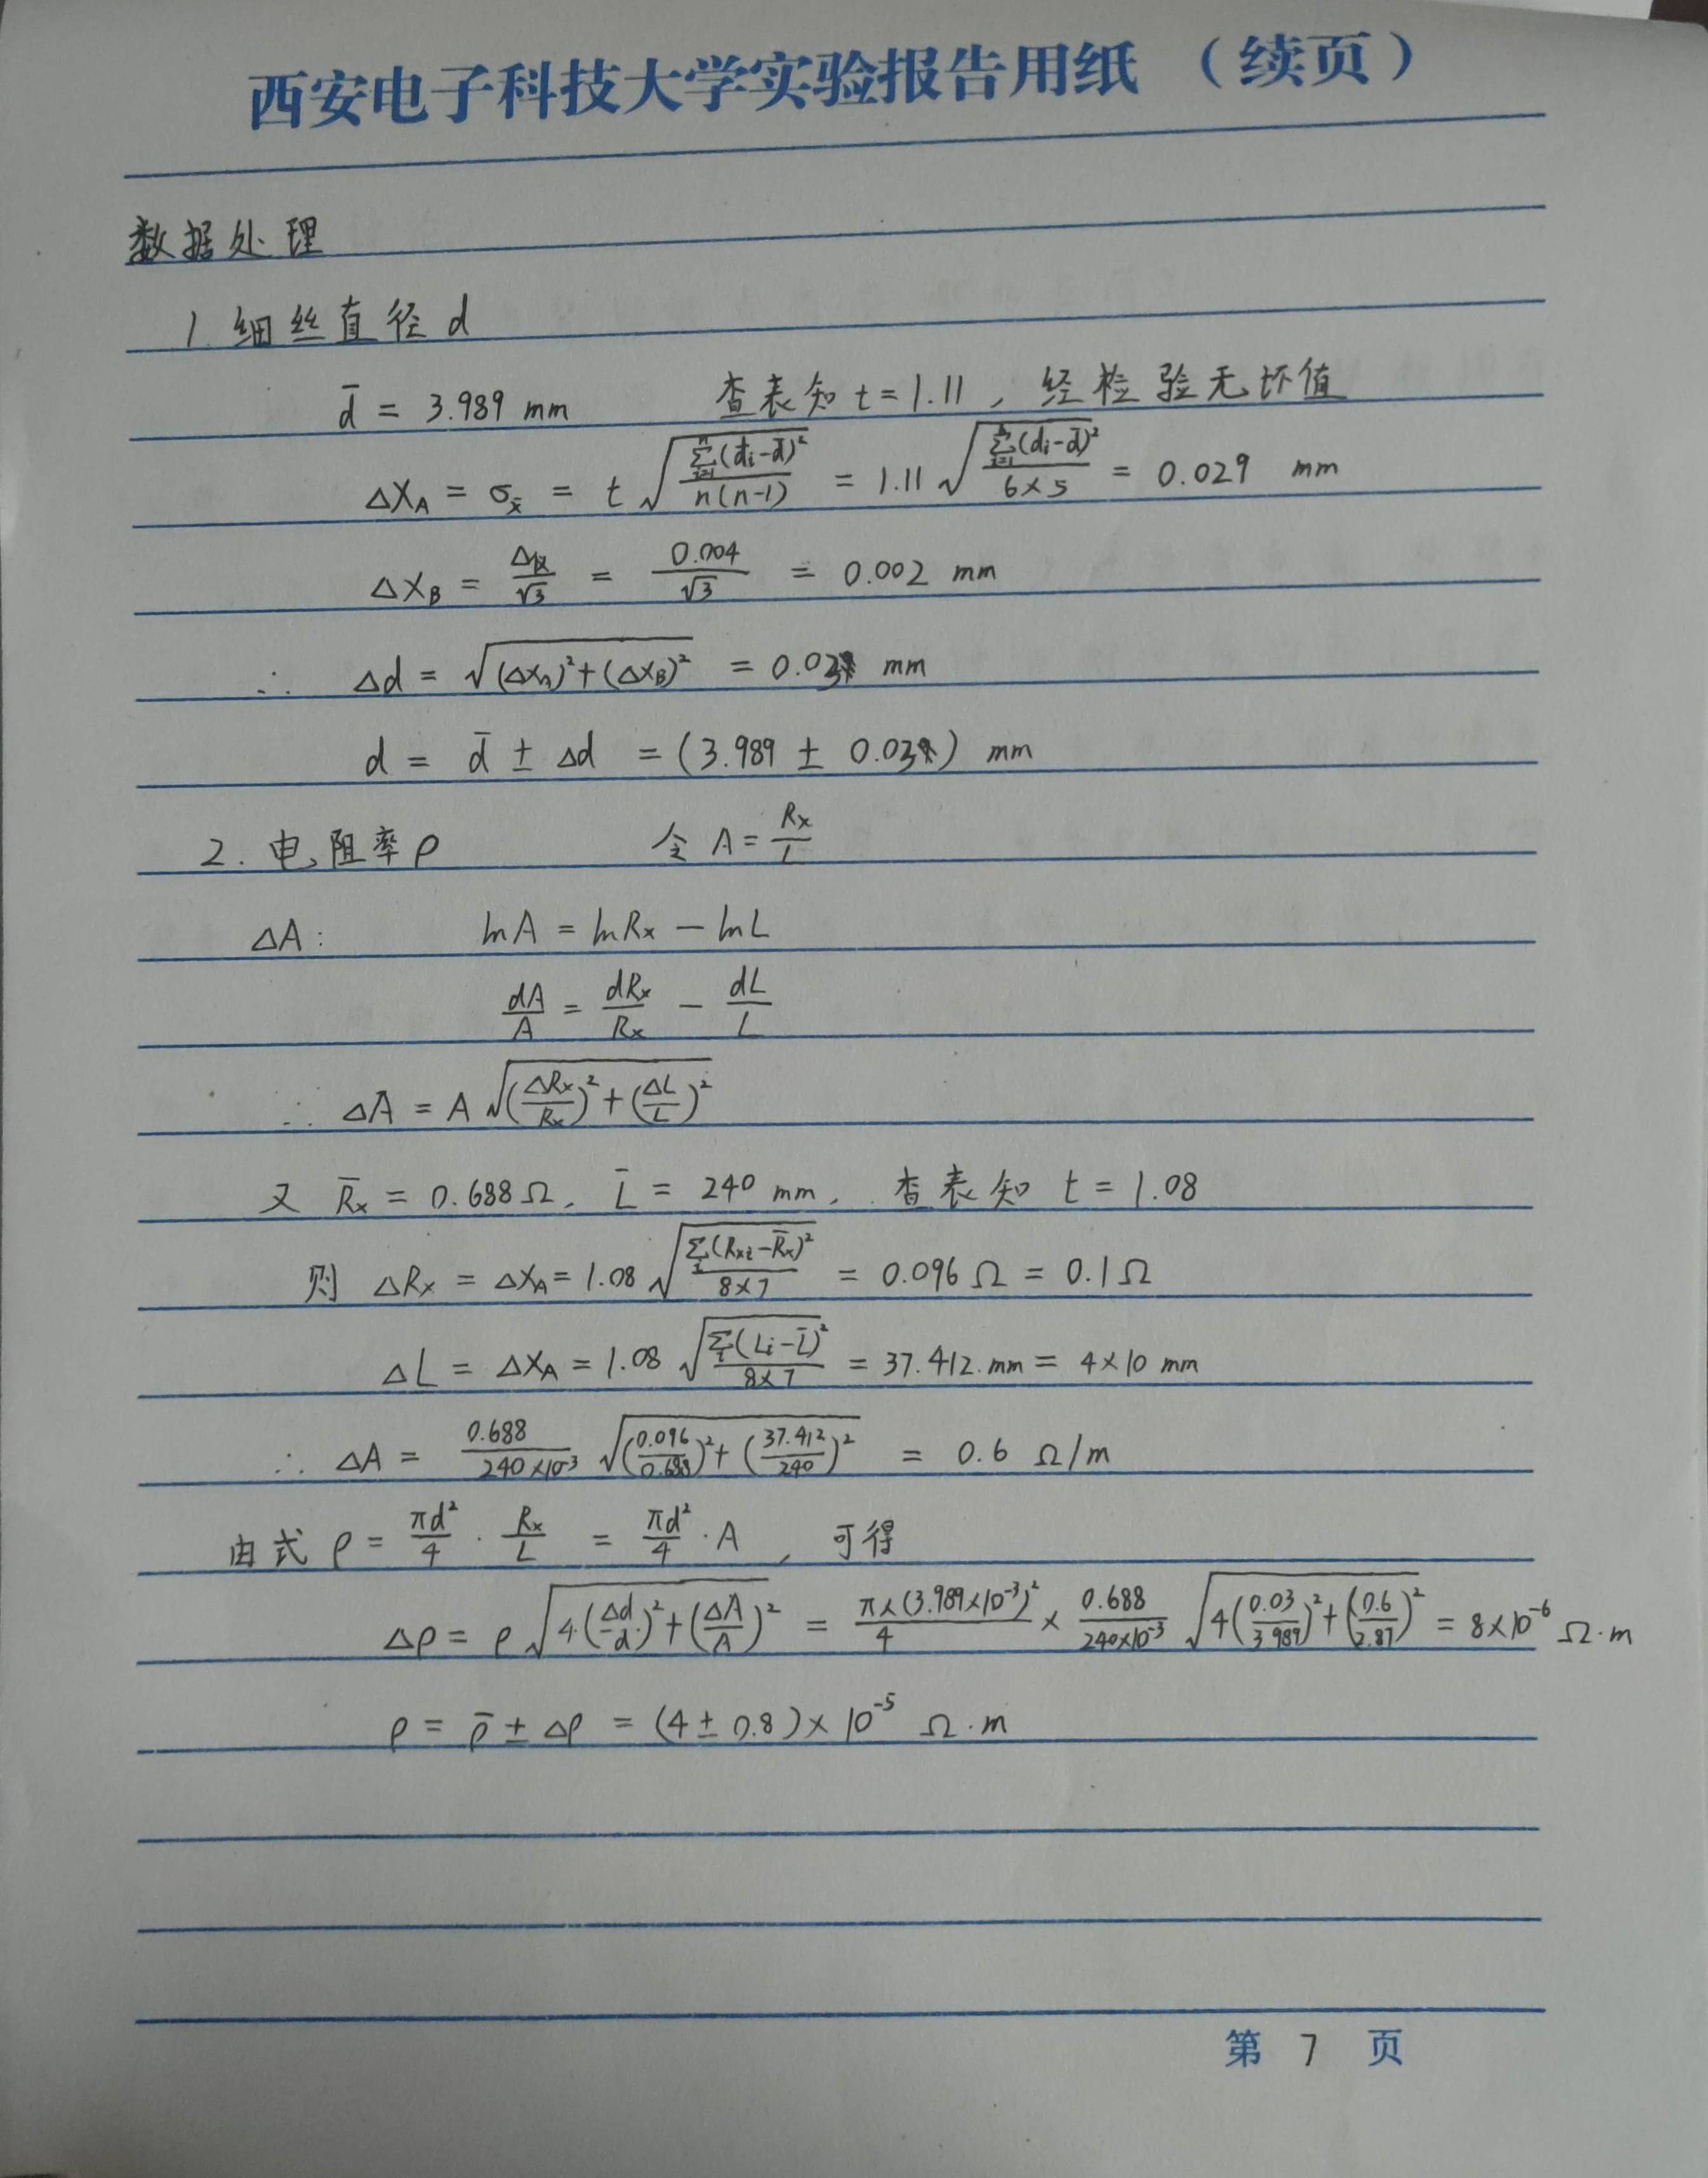 西安电子科技大学实验报告用纸（续页）
数据处理
1. 细丝直径 d
d̄ = 3.989 mm 查表知 t = 1.11，经检验无坏值
ΔX_A = σ_x̄ = t √(∑_{i=1}^{n}(d_i-d̄)²/n(n-1)) = 1.11 √(∑_{i=1}(d_i-d̄)²/6×5) = 0.029 mm
ΔX_B = Δ仪/√3 = 0.004/√3 = 0.002 mm
∴ Δd = √((ΔX_A)²+(ΔX_B)²) = 0.03 mm
d = d̄ ± Δd = (3.989 ± 0.03) mm
2. 电阻率 ρ 令 A = Rx/L
ΔA: lnA = lnRx - lnL
dA/A = dRx/Rx - dL/L
∴ ΔA = A √((ΔRx/Rx)²+(ΔL/L)²)
又 R̄x = 0.688Ω, L̄ = 240 mm, 查表知 t = 1.08
则 ΔRx = ΔX_A = 1.08 √(∑_i(Rxi-R̄x)²/8×7) = 0.096 Ω = 0.1Ω
ΔL = ΔX_A = 1.08 √(∑_i(Li-L̄)²/8×7) = 37.412.mm = 4×10 mm
∴ ΔA = 0.688/240×10⁻³ √((0.096/0.688)²+(37.412/240)²) = 0.6 Ω/m
由式 ρ = πd²/4 · Rx/L = πd²/4 · A , 可得
Δρ = ρ √(4(Δd/d)²+(ΔA/A)²) = π×(3.989×10⁻³)²/4 × 0.688/240×10⁻³ √(4(0.03/3.989)²+(0.6/2.87)²) = 8×10⁻⁶ Ω·m
ρ = ρ̄ ± Δρ = (4 ± 0.8)×10⁻⁵ Ω·m
第 7 页